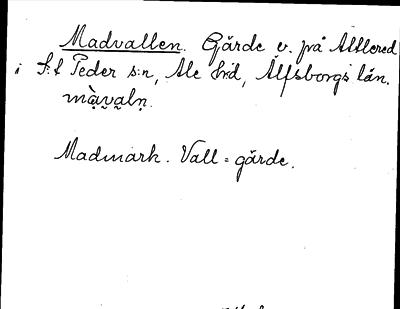 Madvallen. Gärde v. på Alfhem
i S:t Peder s:n, Ale hd, Älfsborgs län.
màvaln.
Madmark. Vall = gärde.